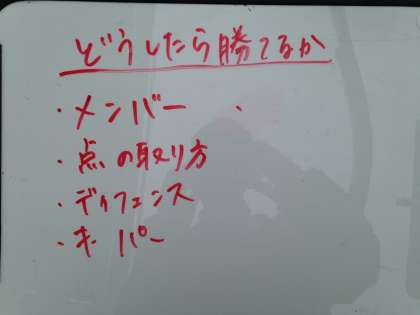 どうしたら勝てるか
・メンバー
・点の取り方
・ディフェンス
・キーパー